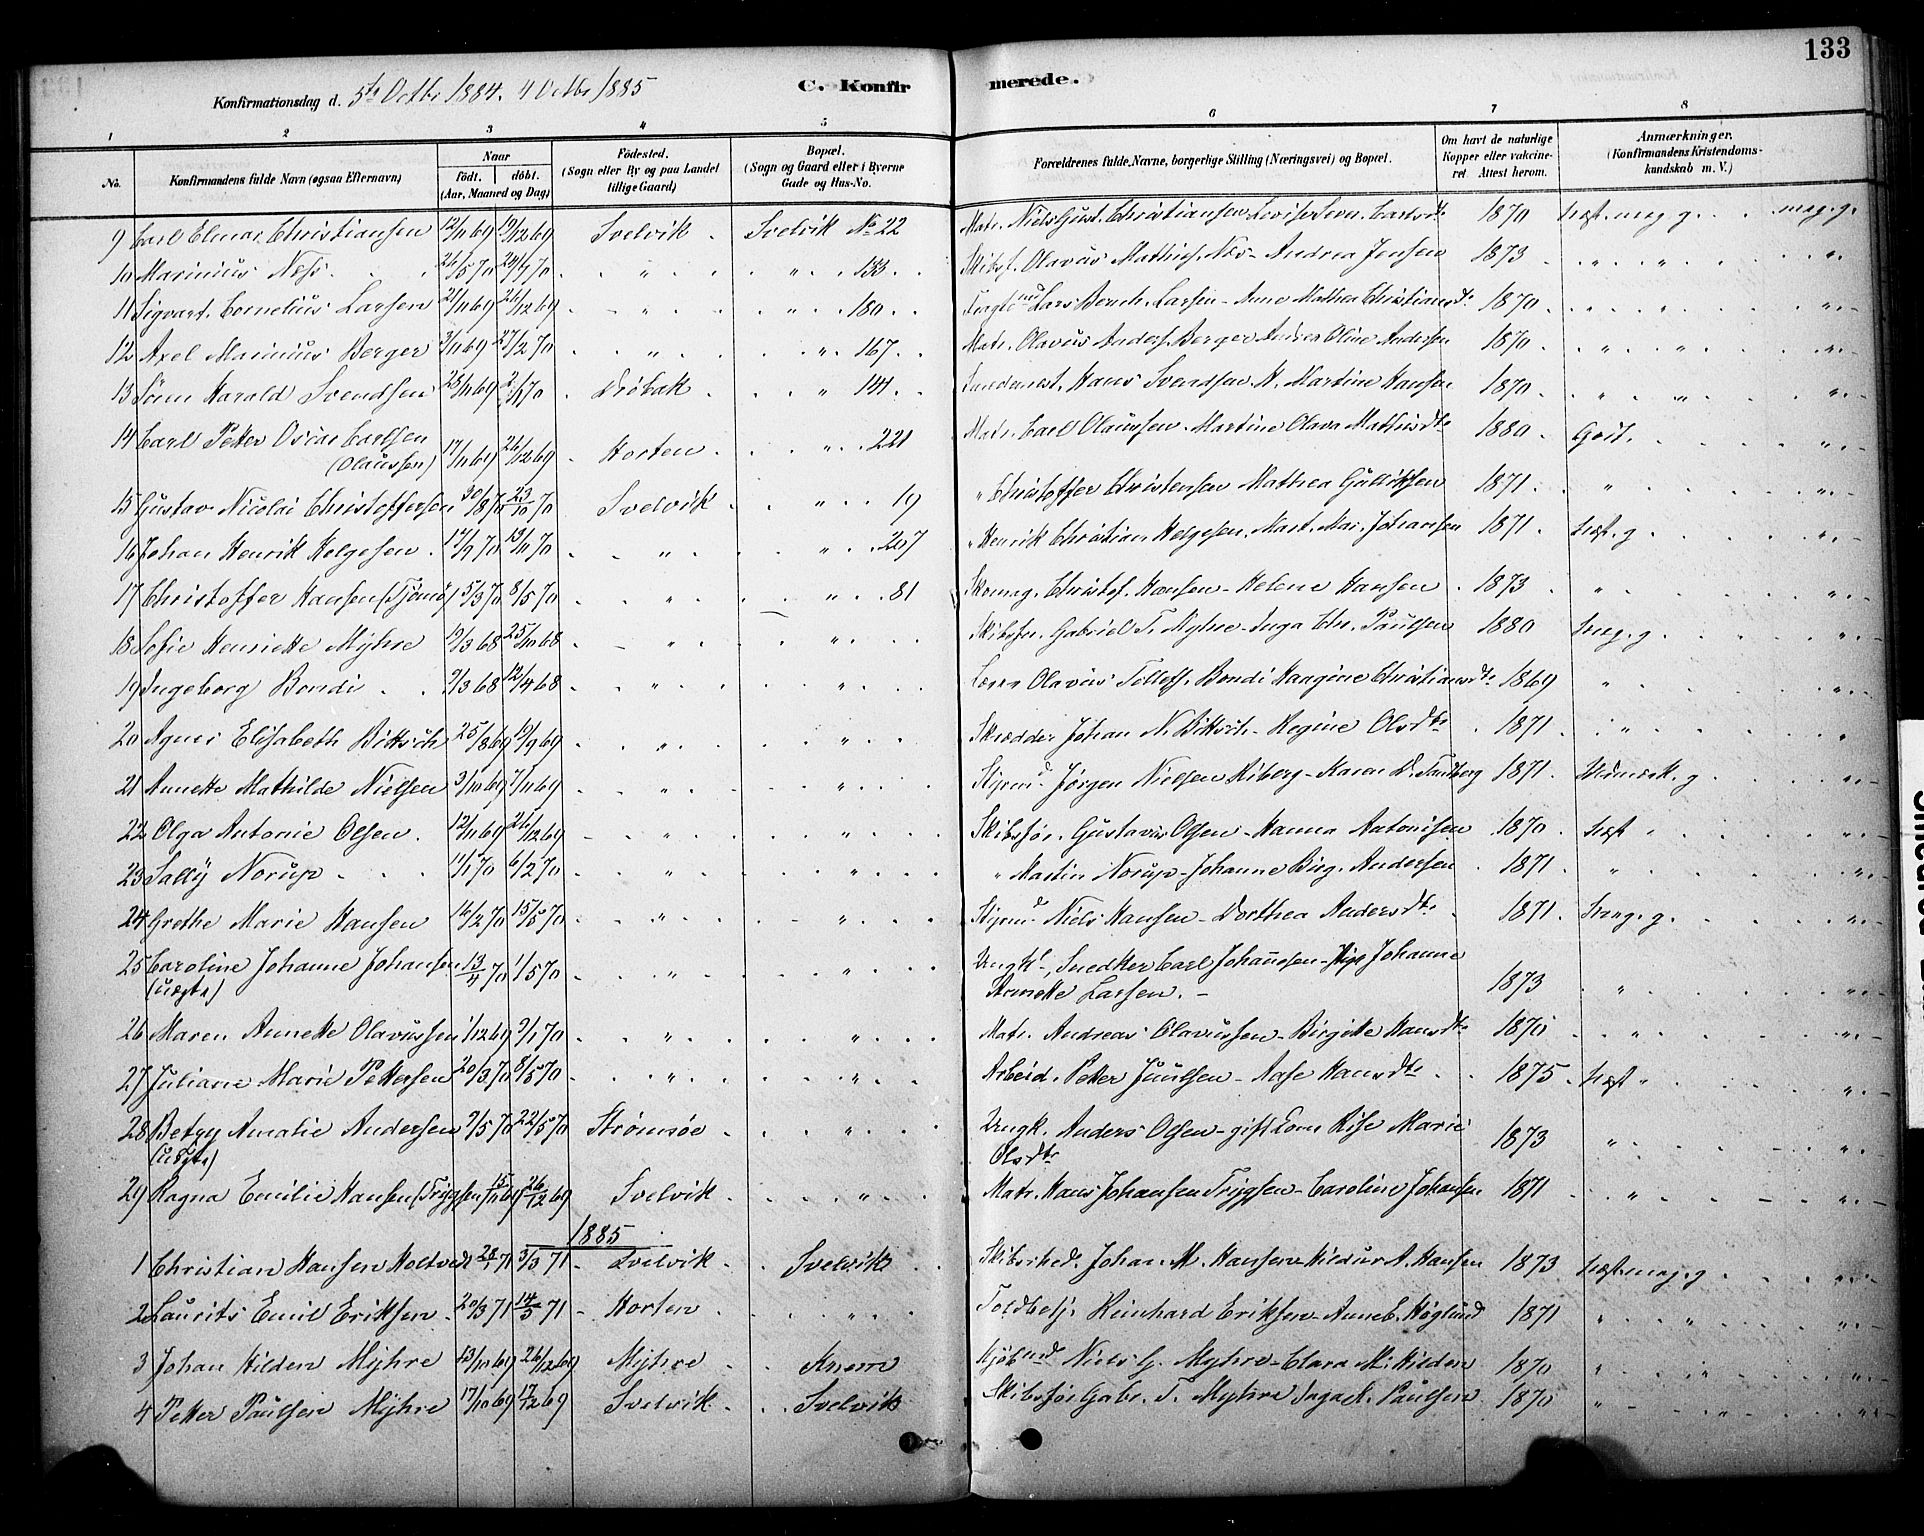 133
Konfirmationsdag d. 5te Octbr 1884. 4 Octbr 1885 C. Konfirmerede.
1 2 3 4 5 6 7 8
No. Konfirmandens fulde Navn (ogsaa Efternavn) Naar født. døbt. (Aar, Maaned og Dag) Fødested. (Sogn eller By og paa Landet tillige Gaard) Bopæl. (Sogn og Gaard eller i Byerne Gade og Hus-No. Forældrenes fulde Navne, borgerlige Stilling (Næringsvei) og Bopæl. Om havt de naturlige Kopper eller vakcineret. Attest herom. Anmærkninger. (Konfirmandens Kristendomskundskab m. V.)
9 Carl Elmar Christiansen 12/11 69 19/12 69 Svelvik Svelvik No 22 Matr. Niels Gust. Christiansen 1870 mag. g.
10 Marinius Næss 26/5 70 24/7 70 " " 133 Skibsf. Olavus Mathis. Næs - Andrea Jensen 1873 " "
11 Sigvart Cornelius Larsen 21/11 69 26/12 69 " " 180 Lars Bernh. Larsen - Anne Mathea Christiansdtr 1870 "
12 Axel Marinius Berger 2/11 69 27/2 70 " " 167 Matr. Olavus Anders. Berger Andrea Oline Andersen 1870 " "
13 Harald Svendsen 28/11 69 Drøbak " 141 Hans Svendsen Martine Hansen 1870 " "
14 Carl Petter Oscar Carlsen (Olaussen) 17/11 69 26/12 69 Horten " 221 Matr. Carl Olaussen - Martine Olava Mathisdtr 1880 Godt.
15 Gustav Nicolai Christoffersen 30/8 70 23/10 70 Svelvik " 19 " Christoffer Christensen Mathea Gulliksen 1871 "
16 Johan Henrik Helgesen 17/7 70 13/11 70 " " 207 " Henrik Christian Helgesen Mart. Mar. Johansen 1871 g
17 Christoffer Hansen (Tjømø) 5/3 70 8/5 70 " " 81 Skomag. Christof. Hansen - Helene Hansen 1873 "
18 Sofie Henriette Myhre 19/3 68 25/10 68 " " Skibsfør. Gabriel T. Myhre - Inga Chr. Paulsen 1880 g
19 Ingeborg Bondi 9/3 68 12/4 68 " " Olavus Tollefs. Bondi Haagine Christiansdtr 1869 "
20 Agnes Elisabeth Bittsch 25/8 69 19/9 69 " " Skrædder Johan N. Bittsch - Regine Olsdtr 1871 "
21 Annette Mathilde Nielsen 3/10 69 7/11 69 " " Styrmd Jørgen Nielsen 1871 g
22 Olga Antonie Olsen 12/11 69 26/12 69 " " Skibsfør. Gustavus Olsen - Hanna Antonisen 1870 "
23 Sally Norup 11/1 70 6/2 70 " " " Martin Norup - Johanne Birg. Andersen 1871 "
24 Grethe Marie Hansen 14/2 70 15/5 70 " " Styrmd Niels Hansen - Dorthea Andersdtr 1871 g
25 Caroline Johanne Johansen (uægte) 13/4 70 1/5 70 " " Ungk., Snedker Carl Johannesen - Pige Johanne
Annette Larsen. 1873 "
26 Maren Annette Olavussen 1/12 69 9/1 70 " " Matr. Andreas Olavussen - Birgitte Hansdtr 1870 "
27 Juliane Marie Pettersen 20/3 70 8/5 70 " " Arbeid. Petter Juulsen - Aase Hansdtr 1875 "
28 Betzy Amalie Andersen (uægte) 9/5 70 22/5 70 Strømsøe " Ungk. Anders Olsen - gift Kone Marie
Olsdtr 1873 "
29 Ragna Emilie Hansen (Trygsen) 15/11 69 26/12 69 Svelvik " Matr. Hans Johansen Trygsen - Caroline Johansen 1871 "
1885
1 Christian Hansen Holtvedt 28/1 71 3/3 71 Svelvik Svelvik Johan M. Hansen - Hildur A. Hansen 1873 mag. g
2 Laurits Emil Eriksen 20/3 71 14/5 71 Horten " Toldbetj. Reinhard Eriksen - Anne E. Høglund 1871 " "
3 Johan Hilden Myhre 13/10 69 26/12 69 Myhre Knem Kjøbmd Niels G. Myhre - Clara M. Hilden 1870 "
4 Petter Paulsen Myhre 17/10 69 69 Svelvik Svelvik Skibsfør Gabr. T. Myhre Inga K. Paulsen 1870 "